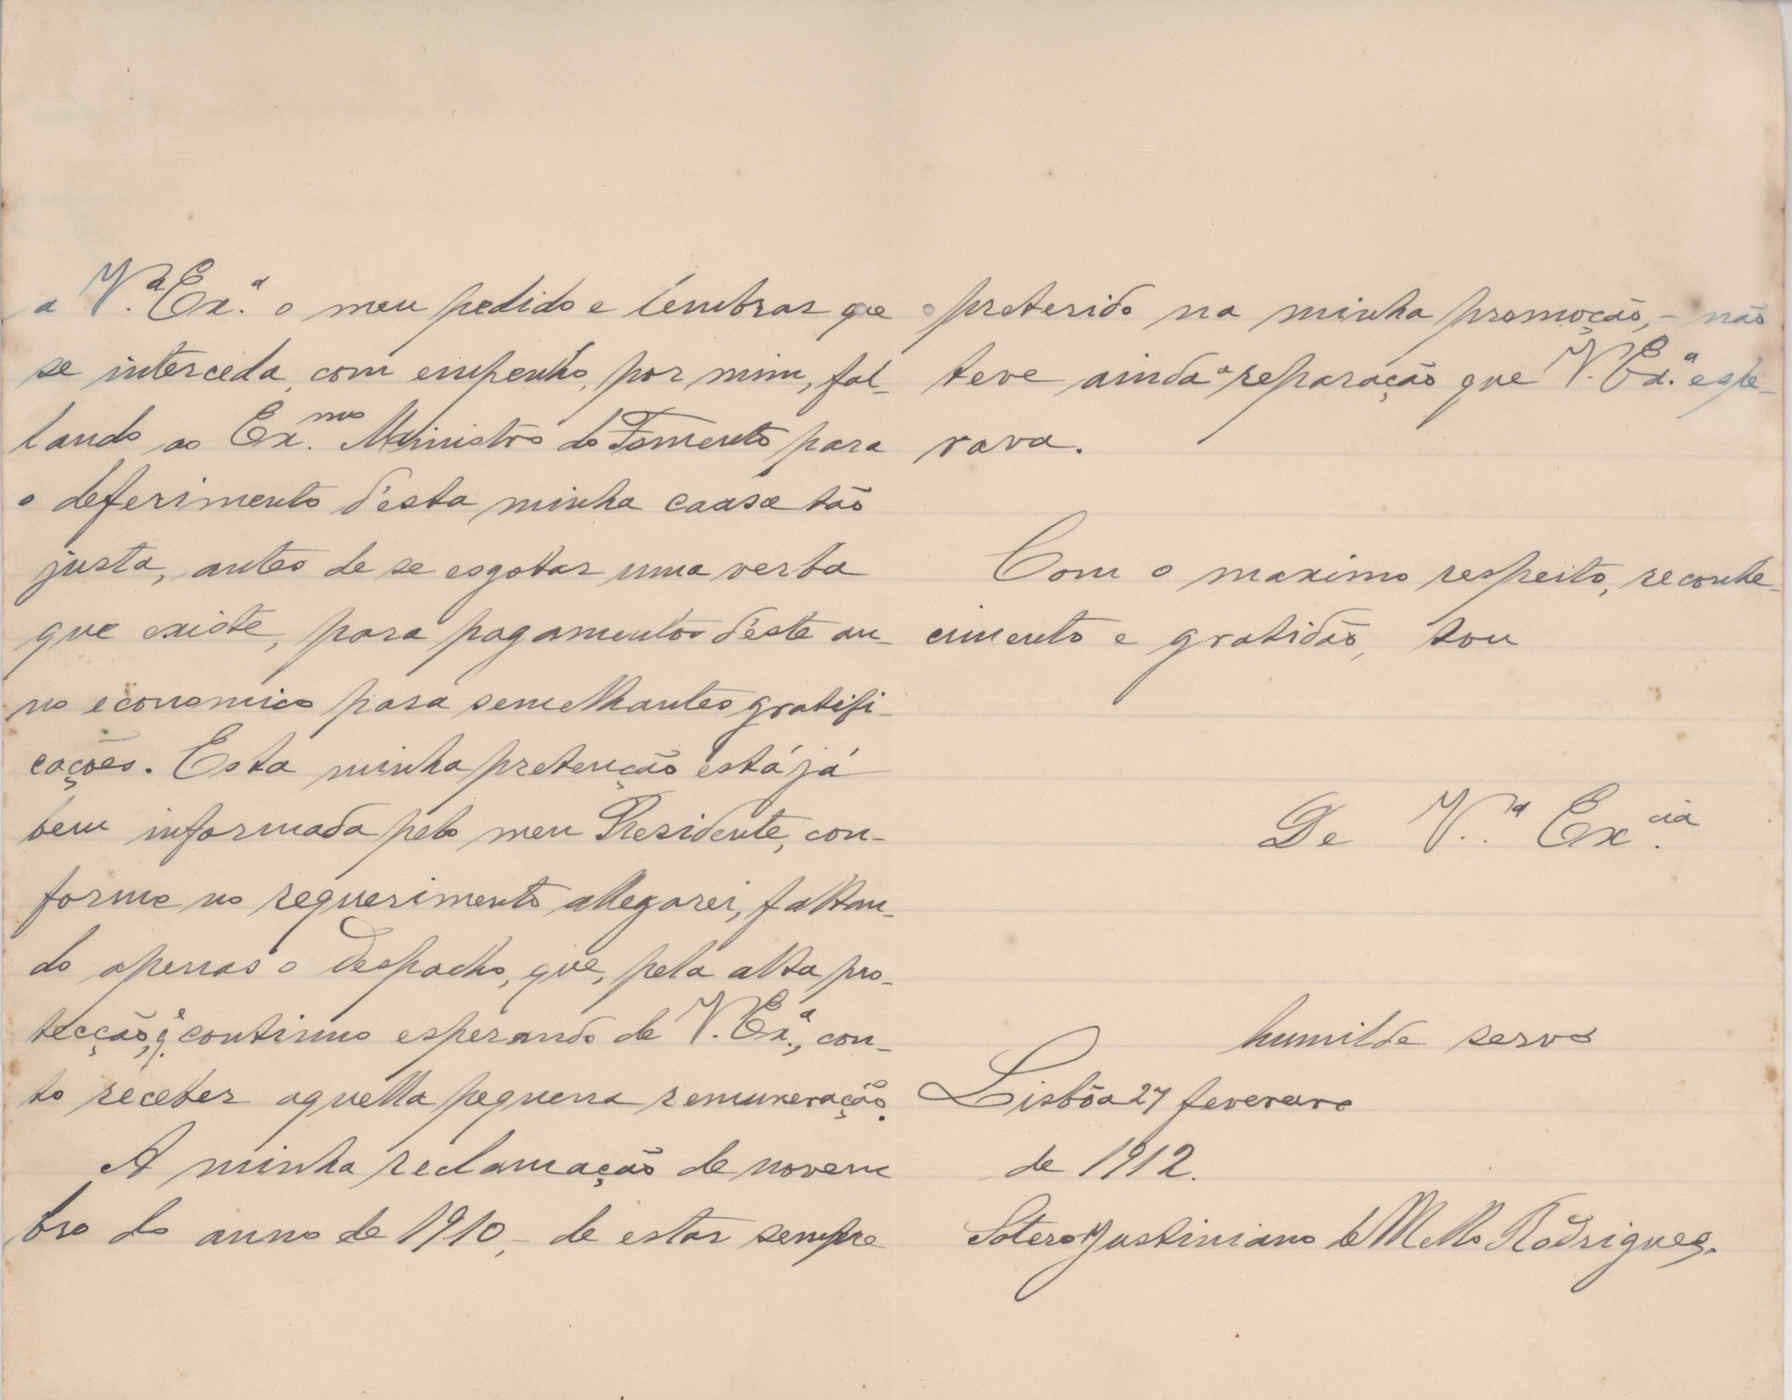 a V.ª Ex.ª o meu pedido e lembrar que
se interceda, com empenho, por mim, fal-
lando ao Ex.mo Ministro do Fomento para
o deferimento d'esta minha causa tão
justa, antes de se esgotar uma verba
que existe, para pagamentos d'este an-
no economico para semelhantes gratifi-
cações. Esta minha pretenção está já
bem informada pelo meu Presidente, con-
forme no requerimento allegarei, faltan-
do apenas o despacho, que, pela alta pro-
tecção, q.e continuo esperando de V. Ex.ª, con-
to receber aquella pequena remuneração.
A minha reclamação de novem
bro do anno de 1910, - de estar sempre
preterido na minha promoção, - não
teve ainda a reparação que V. Ex.ª espe-
rava.
Com o maximo respeito, reconhe-
cimento e gratidão, sou
De V.ª Ex.cia
humilde servo
Lisbôa 27 fevereiro
de 1912.
Sotero Justiniano de Mello Rodrigues.